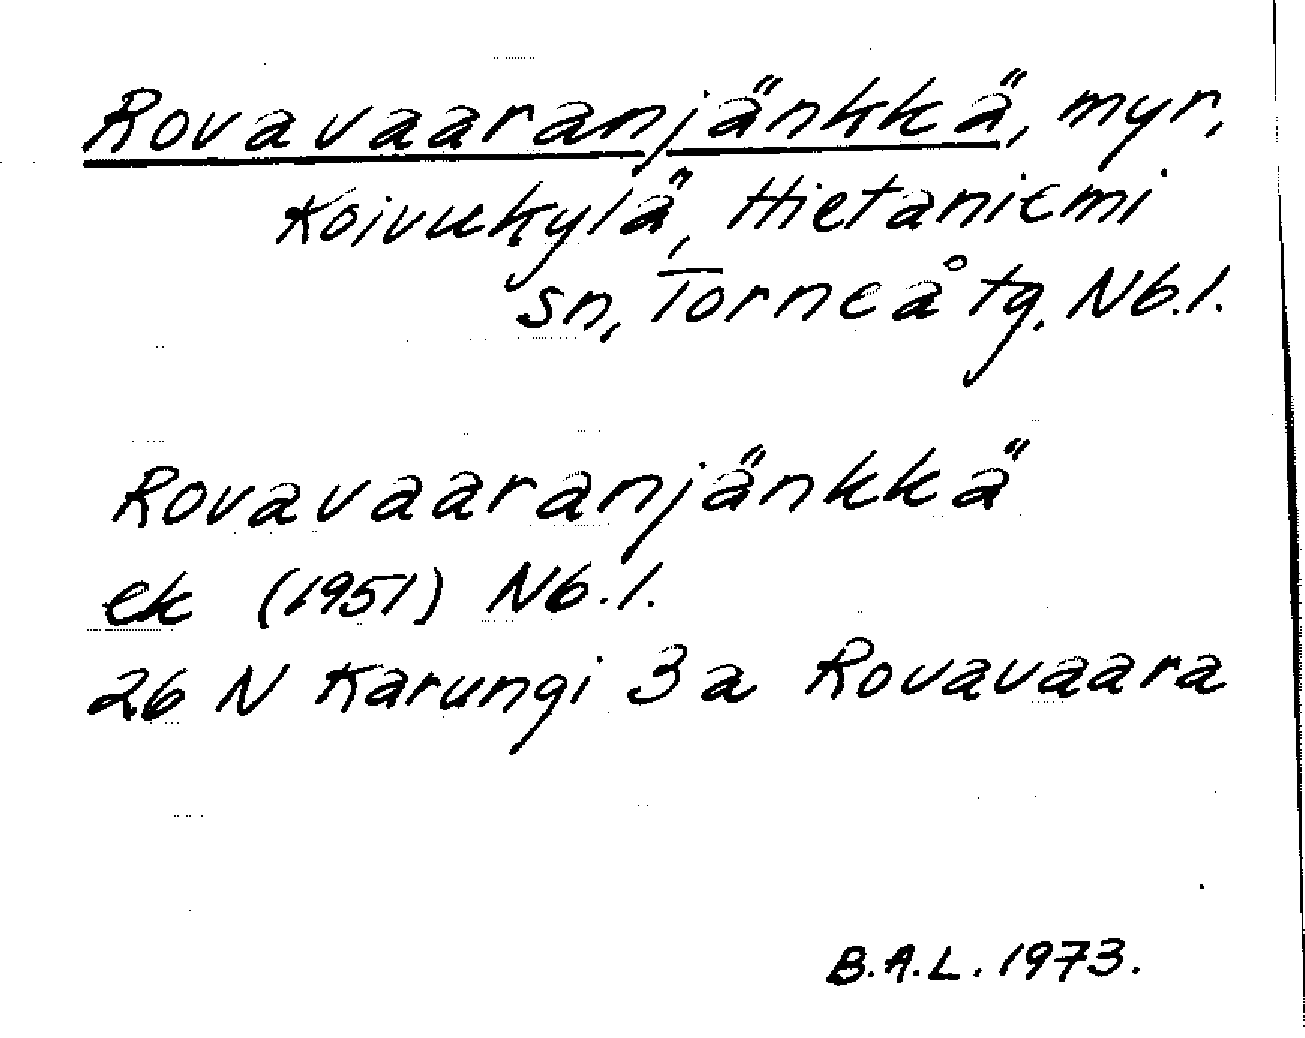 Rovavaaranjänkkä, myr,
Koivukylä, Hietaniemi
sn, Torneå tg, Nb.l.
Rovavaaranjänkkä
ek (1951) Nb.l.
26 N Karungi 3a Rovavaara
B.A.L. 1973.